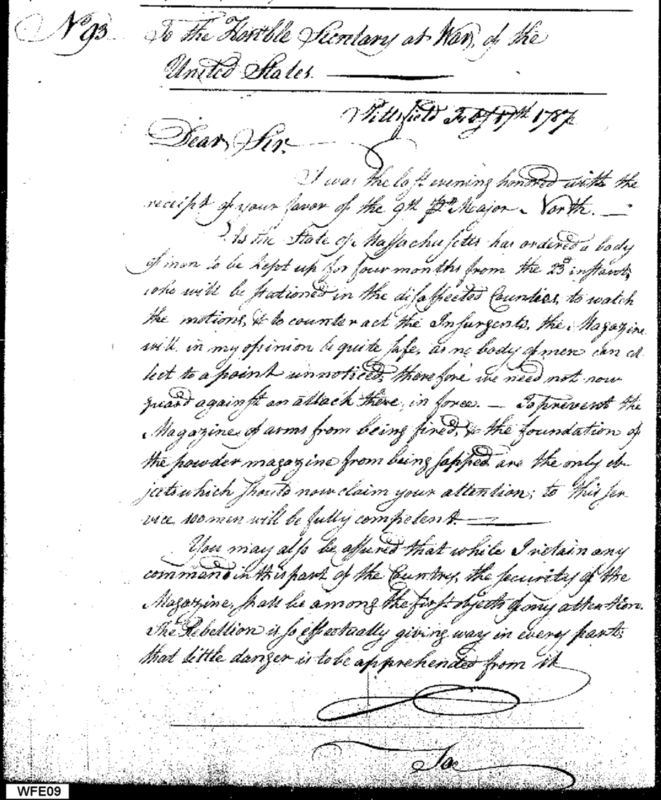 No 93.
To the Honble Secretary at War, of the
United States.
Pittsfield Feby 17th 1787
Dear Sir.
I was the last evening honored with the
receipt of your favor of the 9th pr Major North. —
As the State of Massachusetts has ordered a body
of men to be kept up for four months from the 23d instant,
who will be stationed in the disaffected Counties, to watch
the motions, & to counter act the Insurgents, the Magazine
will in my opinion be quite safe, as no body of men can col
lect to a point unnoticed, therefore we need not now
guard against an attack there, in force. — To prevent the
Magazine of arms from being fired, & the foundation of
the powder magazine from being sapped are the only ob
jects which should now claim your attention; to this ser
vice men will be fully competent. —
You may also be assured that while I retain any
command in this part of the Country, the security of the
Magazine, shall be among the first objects of my attention.
The Rebellion is so effectually giving way in every part,
that little danger is to be apprehended from it
To
WFE09